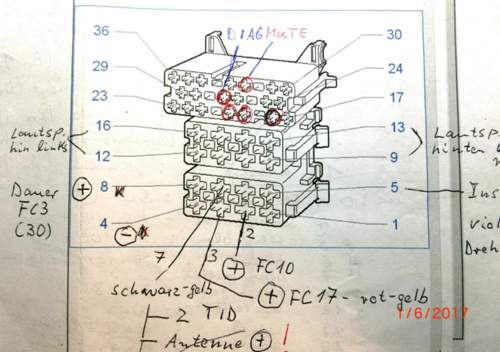 DIAG MUTE
36 30
29 24
23 17
16 13
Lautsp. Lautsp.
hin links hinten
12 9
Dauer + 8 5 Ins
FC3
(30) 4 1
- 2
7 3 + FC10
viol
Dreh
schwarz-gelb + FC17 - rot-gelb
2 TID
Antenne + !
1/6/2017